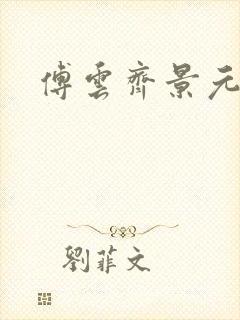 傅雲齊景元
劉菲文